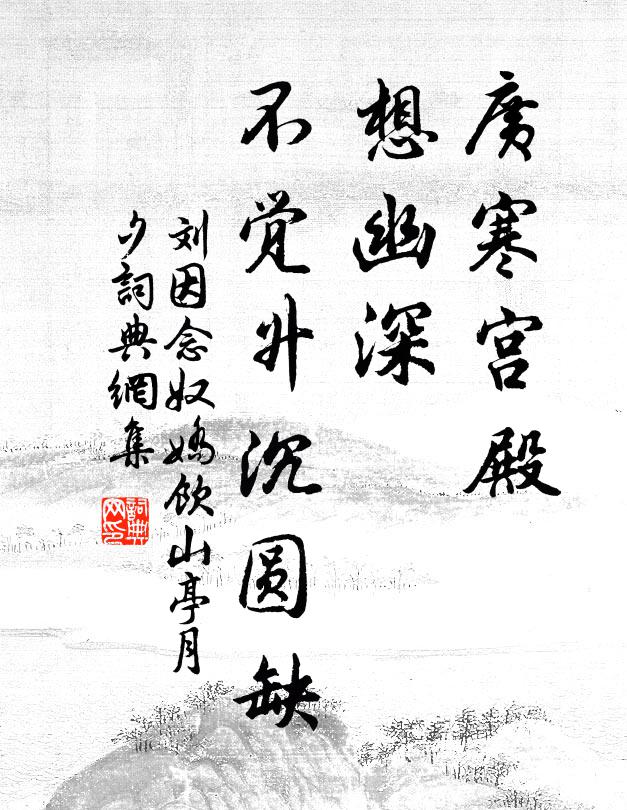 廣寒宫殿
想幽深
不觉升沉圆缺
刘因念奴嬌飲山亭月
夕詞典網集
詞典